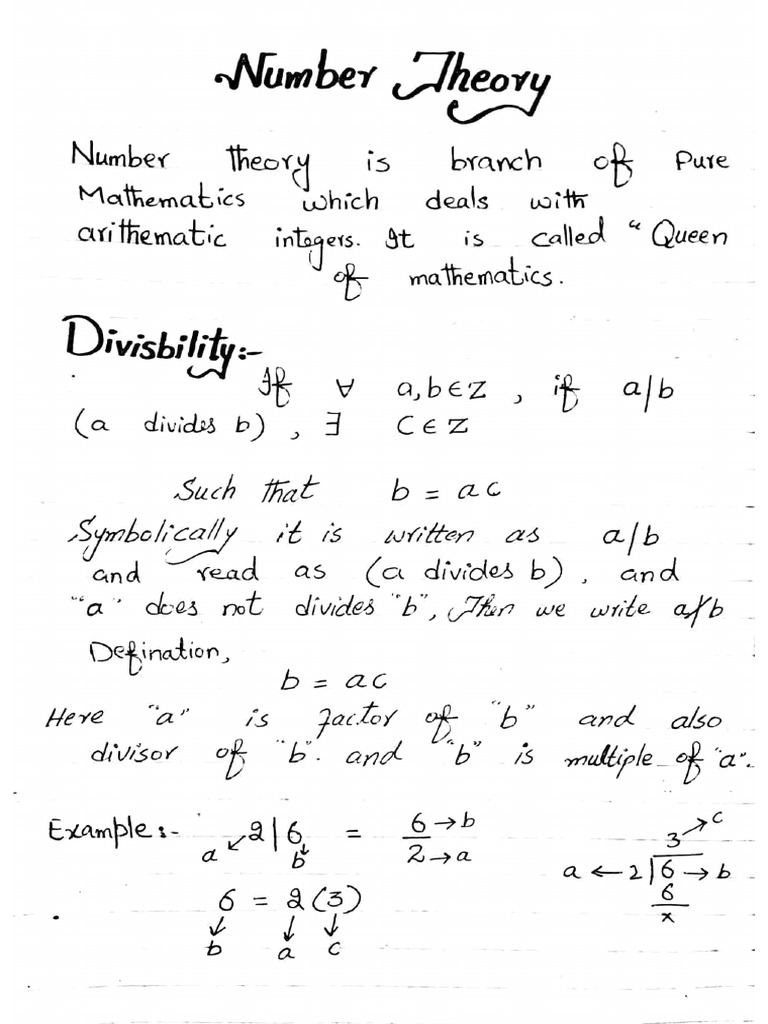 Number Theory
Number theory is branch of Pure
Mathematics which deals with
arithematic integers. It is called "Queen
of mathematics.
Divisbility:-
If ∀ a,b∈Z , if a/b
(a divides b) , ∃ C∈Z
Such that b = ac
Symbolically it is written as a/b
and read as (a divides b) , and
"a" does not divides "b", Then we write a∤b
Defination,
b = ac
Here "a" is factor of "b" and also
divisor of "b". and "b" is multiple of "a".
Example:- 2|6 = 6→b
a b 2→a
6 = 2(3)
b a c
c
3
a ← 2 | 6 → b
6
x